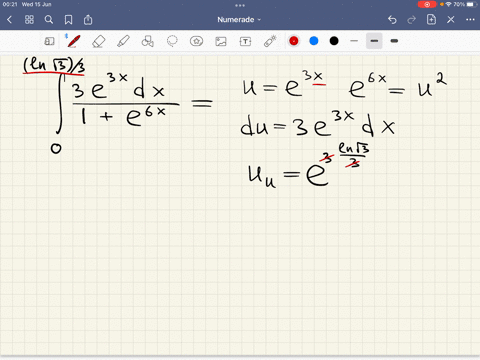 00:21 Wed 15 Jun
70%
Numerade
(ln √3)/3
∫ 3e^{3x} dx / 1 + e^{6x} =
0
u = e^{3x} e^{6x} = u^2
du = 3e^{3x} dx
u_u = e^{3 ln√3/3}